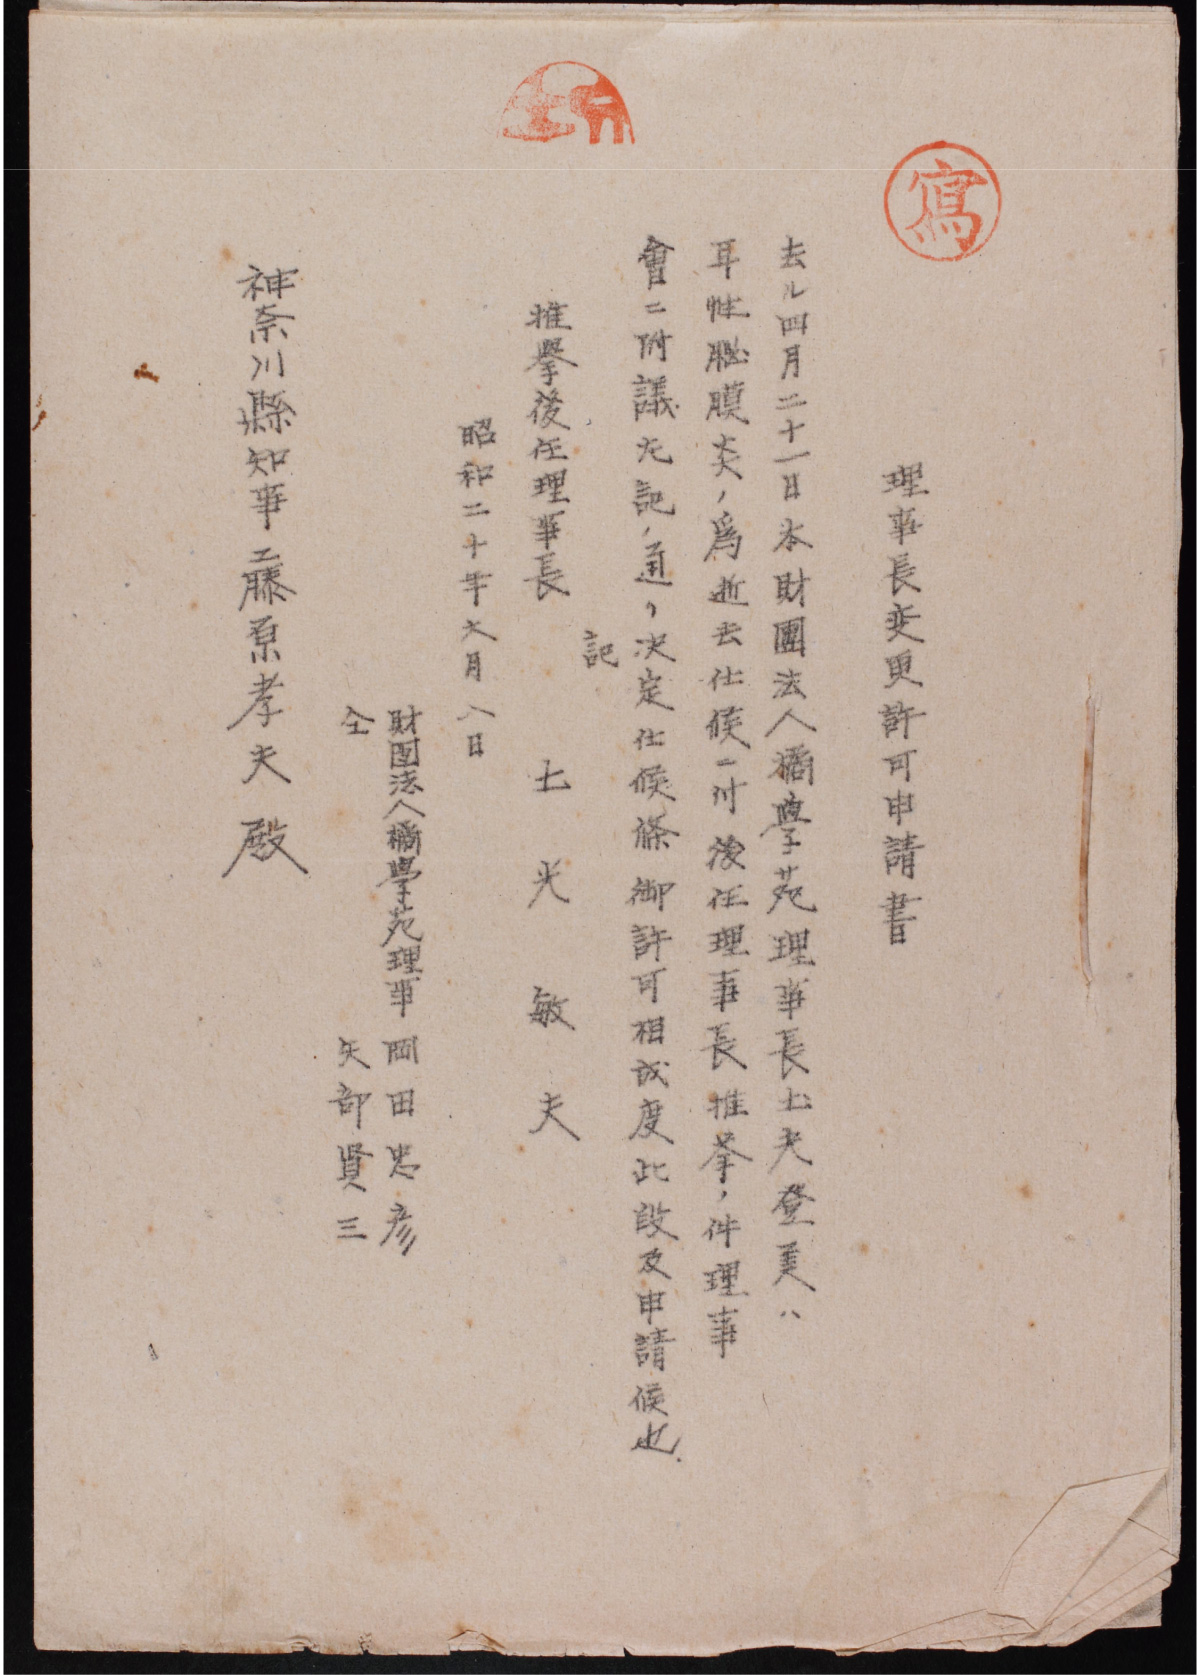 寫
理事長変更許可申請書
去ル四月二十一日本財團法人橘學苑理事長土光登美ハ
耳性脳膜炎ノ為逝去仕候ニ付後任理事長推挙ノ件理事
會ニ附議左記ノ通リ決定仕候條御許可相成度此段及申請候也
記
推擧後任理事長　土光敏夫
昭和二十年六月八日
財團法人橘學苑理事　岡田忠彦
仝　矢部賢三
神奈川縣知事　藤原孝夫殿